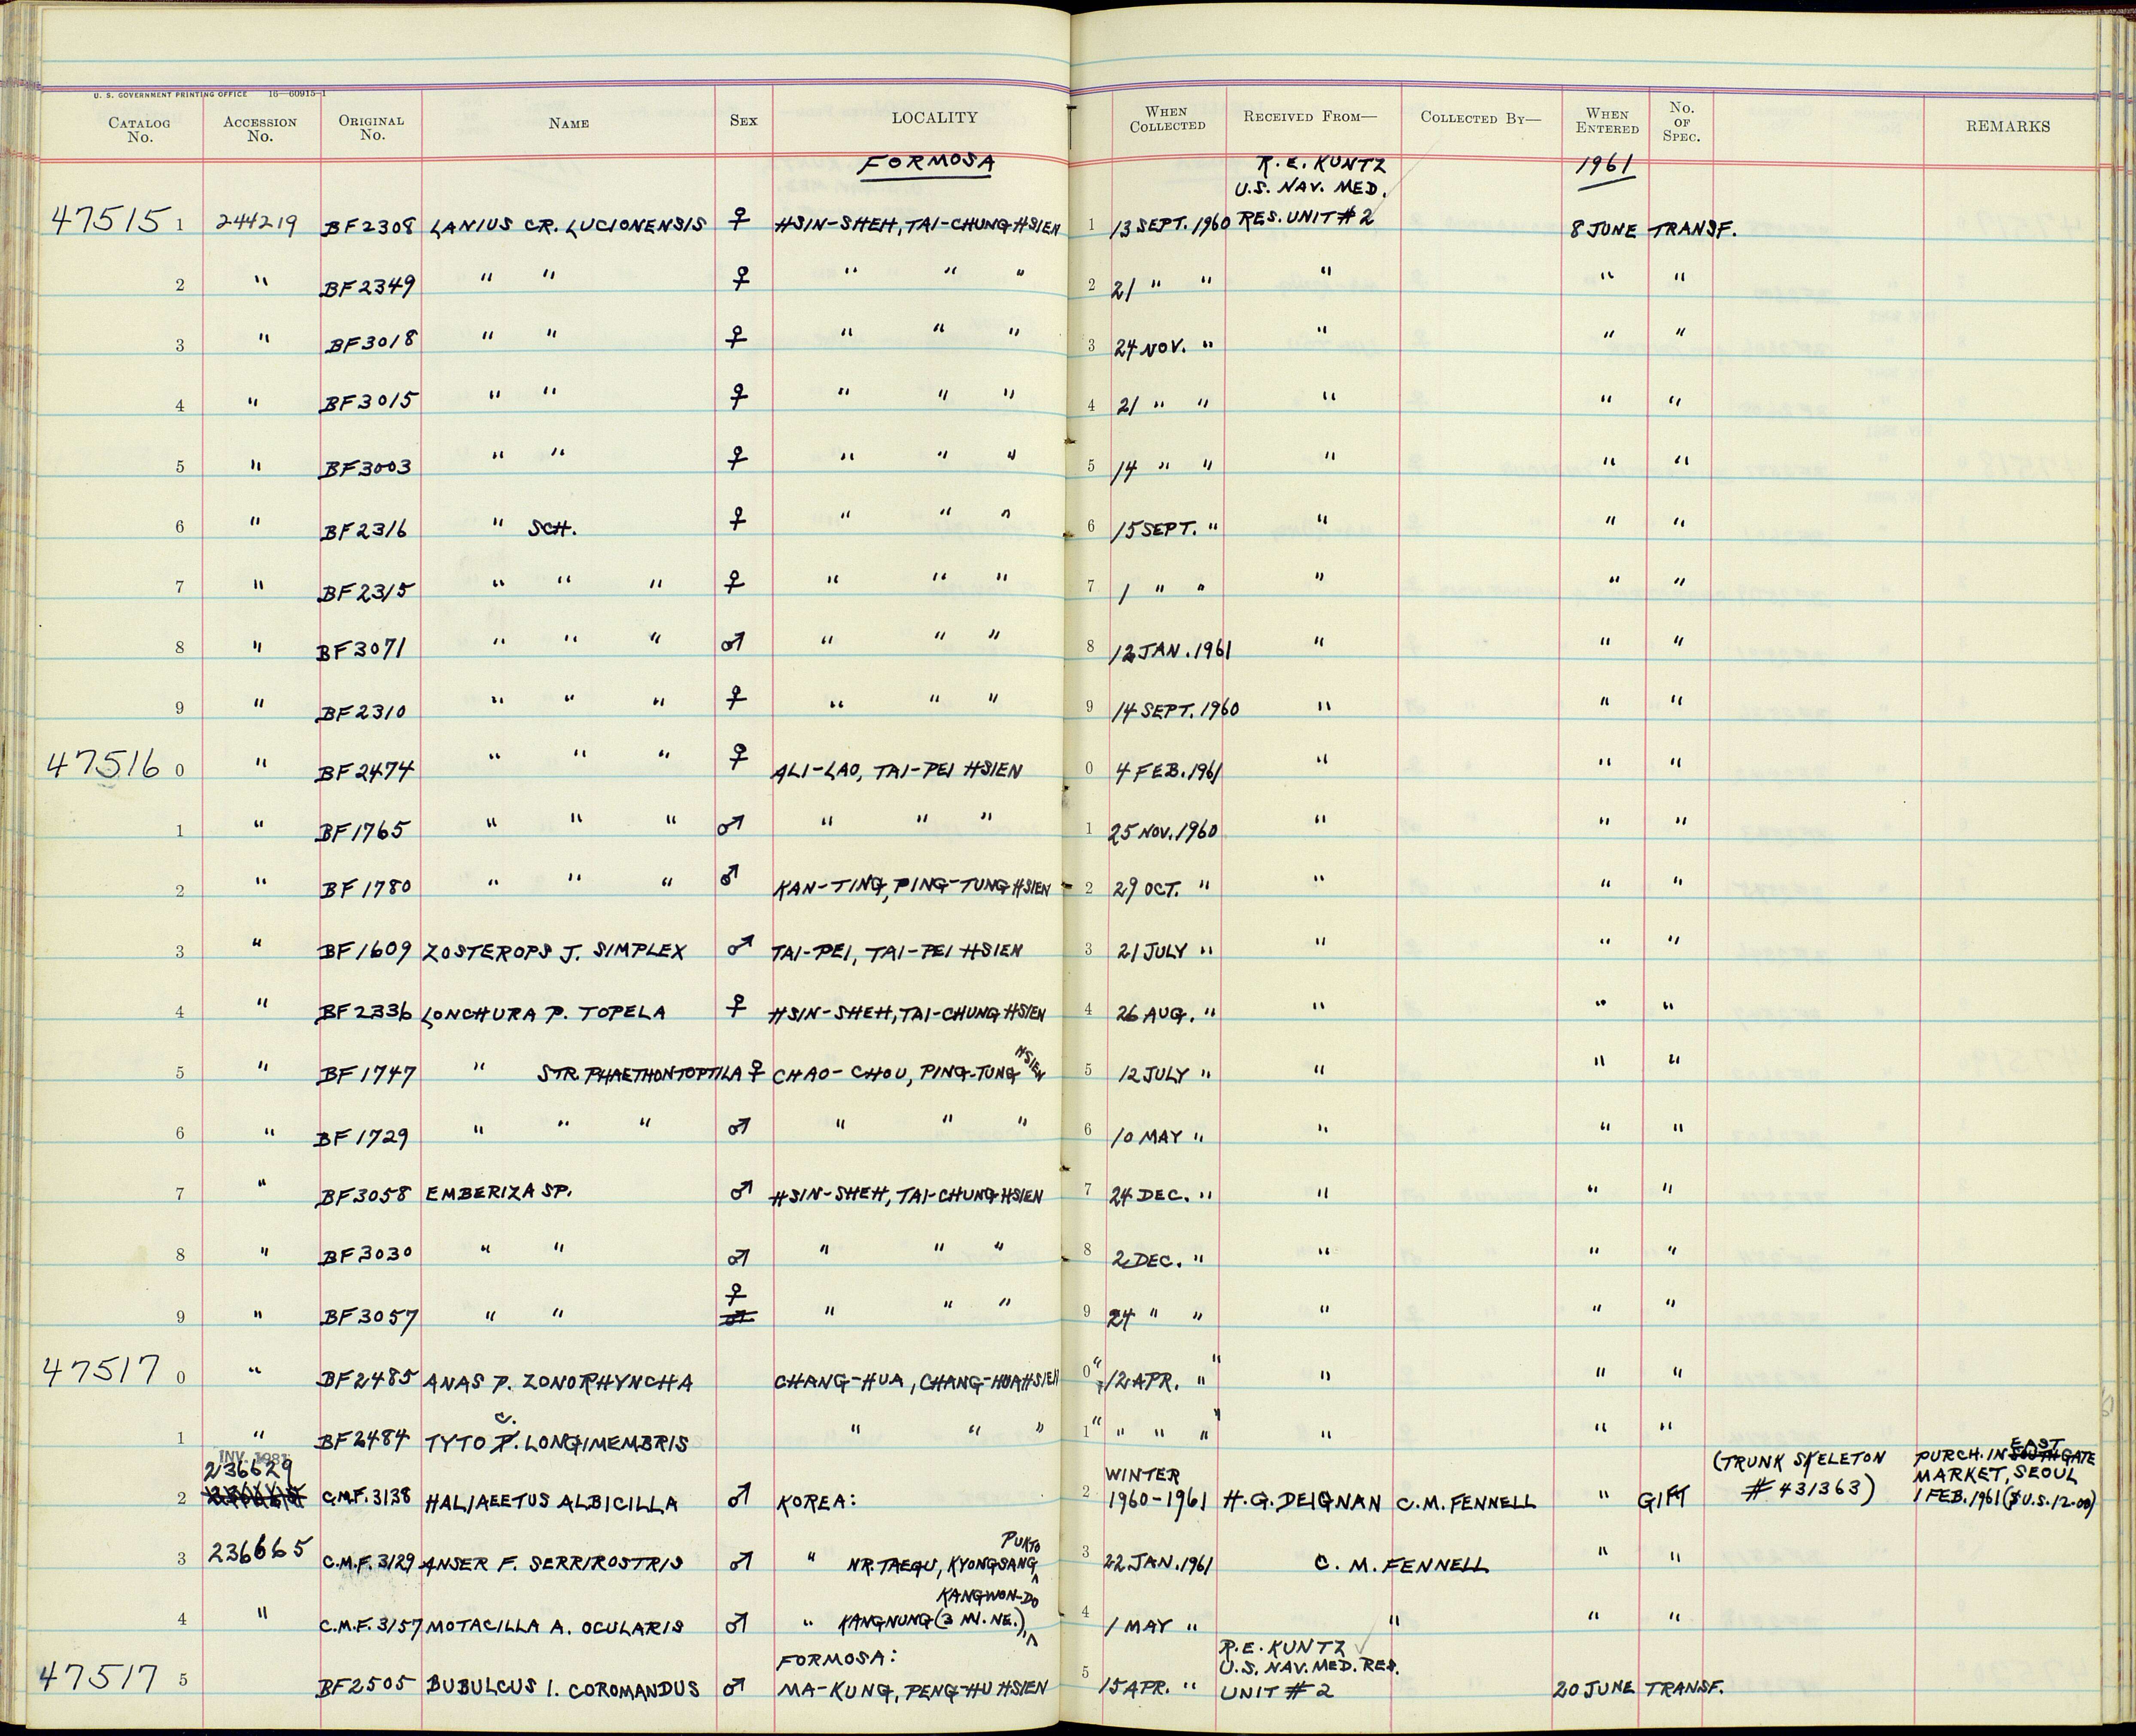 U. S. GOVERNMENT PRINTING OFFICE 16—60915-1
CATALOG No. ACCESSION No. ORIGINAL No. NAME SEX LOCALITY WHEN COLLECTED RECEIVED FROM— COLLECTED BY— WHEN ENTERED No. OF SPEC. REMARKS
FORMOSA R. E. KUNTZ 1961
U.S. NAV. MED.
47515 1 244219 BF2308 LANIUS CR. LUCIONENSIS ♀ HSIN-SHEH, TAI-CHUNG HSIEN 1 13 SEPT. 1960 RES. UNIT # 2 8 JUNE TRANSF.
2 " BF2349 " " ♀ " " " 2 21 " " " " "
3 " BF3018 " " ♀ " " " 3 24 NOV. " " " "
4 " BF3015 " " ♀ " " " 4 21 " " " " "
5 " BF3003 " " ♀ " " " 5 14 " " " " "
6 " BF2316 " SCH. ♀ " " " 6 15 SEPT. " " " "
7 " BF2315 " " " ♀ " " " 7 1 " " " " "
8 " BF3071 " " " ♂ " " " 8 12 JAN. 1961 " " "
9 " BF2310 " " " ♀ " " " 9 14 SEPT. 1960 " " "
47516 0 " BF2474 " " " ♀ ALI-LAO, TAI-PEI HSIEN 0 4 FEB. 1961 " " "
1 " BF1765 " " " ♂ " " " 1 25 NOV. 1960 " " "
2 " BF1780 " " " ♂ KAN-TING, PING-TUNG HSIEN 2 29 OCT. " " " "
3 " BF1609 ZOSTEROPS J. SIMPLEX ♂ TAI-PEI, TAI-PEI HSIEN 3 21 JULY " " " "
4 " BF2336 LONCHURA P. TOPELA ♀ HSIN-SHEH, TAI-CHUNG HSIEN 4 26 AUG. " " " "
5 " BF1747 " STR. PHAETHONTOPTILA ♀ CHAO-CHOU, PING-TUNG HSIEN 5 12 JULY " " " "
6 " BF1729 " " " ♂ " " " 6 10 MAY " " " "
7 " BF3058 EMBERIZA SP. ♂ HSIN-SHEH, TAI-CHUNG HSIEN 7 24 DEC. " " " "
8 " BF3030 " " ♂ " " " 8 2 DEC. " " " "
9 " BF3057 " " ♀ " " " 9 24 " " " " "
47517 0 " BF2485 ANAS P. ZONORHYNCHA CHANG-HUA, CHANG-HUA HSIEN 0 " 12 APR. " " " " "
1 " BF2484 TYTO C. LONGIMEMBRIS " " " 1 " " " " " " " "
INV. 1981
236629 WINTER (TRUNK SKELETON PURCH. IN EAST GATE
2 C.M.F. 3138 HALIAEETUS ALBICILLA ♂ KOREA: 2 1960-1961 H. G. DEIGNAN C. M. FENNELL " GIFT # 431363) MARKET, SEOUL
1 FEB. 1961 ($U.S. 12.00)
3 236665 C.M.F. 3129 ANSER F. SERRIROSTRIS ♂ " NR. TAEGU, KYONGSANG PUKTO 3 22 JAN. 1961 C. M. FENNELL " "
4 " C.M.F. 3157 MOTACILLA A. OCULARIS ♂ " KANGNUNG (3 MI. NE.), KANGWON-DO 4 1 MAY " " " "
FORMOSA: R. E. KUNTZ
U.S. NAV. MED. RES.
47517 5 BF2505 BUBULCUS I. COROMANDUS ♂ MA-KUNG, PENG-HU HSIEN 5 15 APR. " UNIT # 2 20 JUNE TRANSF.